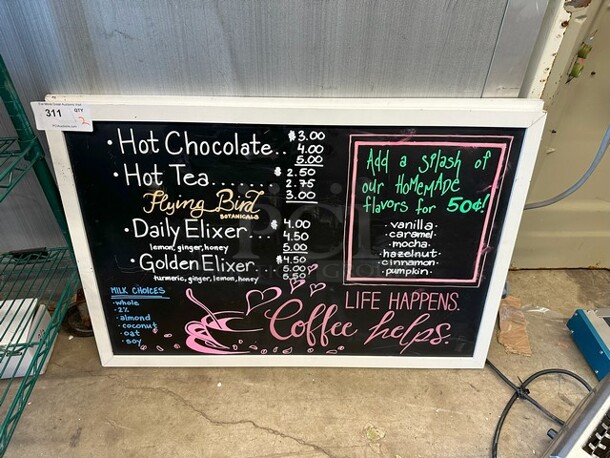 311 QTY 2
• Hot Chocolate.. $3.00
4.00
5.00
• Hot Tea..... $2.50
2.75
3.00
Flying Bird
BOTANICALS
• Daily Elixer... $4.00
4.50
5.00
lemon, ginger, honey
• Golden Elixer.. $4.50
5.00
5.50
turmeric, ginger, lemon, honey
MILK CHOICES
• whole
• 2%
• almond
• coconut
• oat
• soy
Add a splash of
our HOMEMADE
flavors for 50¢!
• vanilla •
• caramel •
• mocha •
• hazelnut •
• cinnamon •
• pumpkin •
LIFE HAPPENS.
Coffee helps.